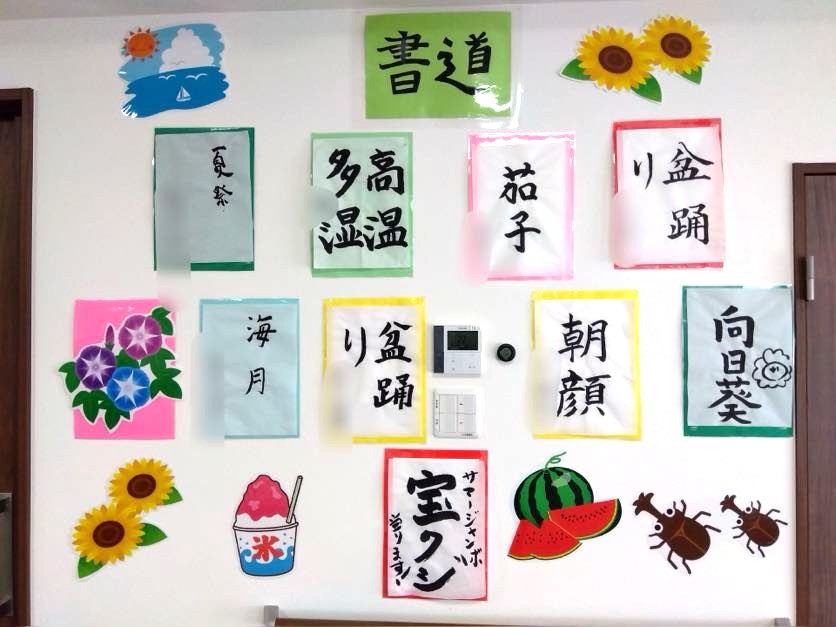 書道
夏祭
高温
多湿
茄子
盆踊
り
海月
盆踊
り
朝顔
向日葵
サマージャンボ
宝クジ
当ります!
氷